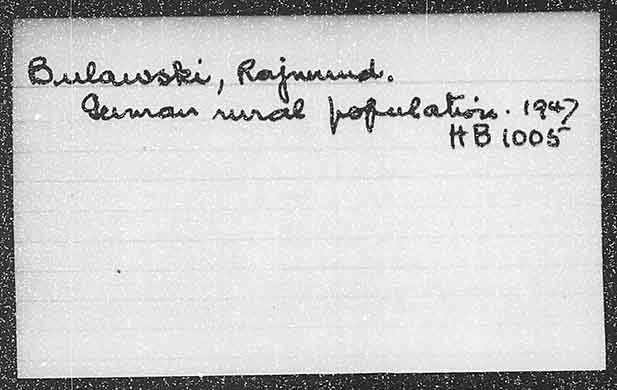 Bulawski, Rajmund.
German rural population. 1947
HB 1005